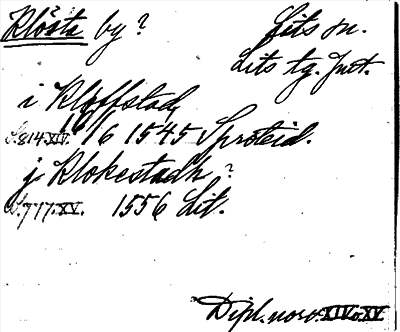 Klösta by? Lits sn.
Lits tg. Jmt.
i Kloffstad
S.814.XIV. 16/6 1545 Sproteid.
j Klokestadh?
S.717.XV. 1556 Lit.
Dipl. norv. XIV o. XV